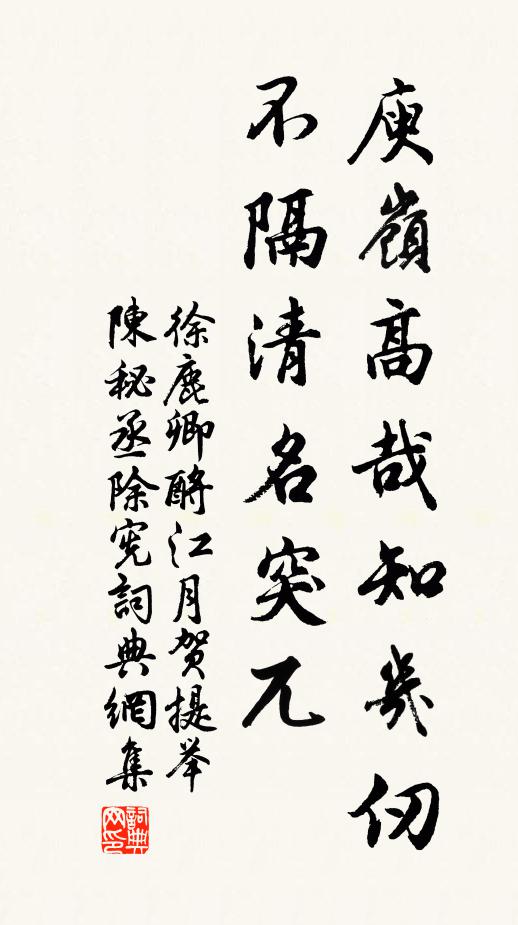 庾嶺高哉知幾仞
不隔清名突兀
徐鹿卿酹江月贺提举
陳秘丞除宪詞典網集
詞典网印